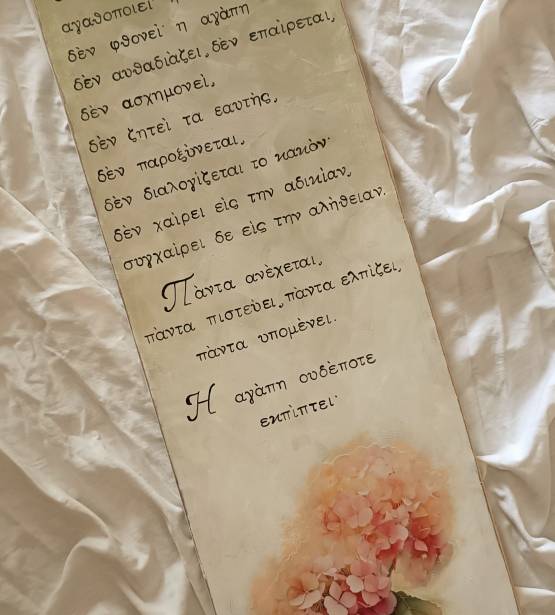 αγαθοποιεί η
δὲν φθονεί· η αγάπη
δὲν αυθαδιάζει, δὲν επαίρεται,
δὲν ασχημονεὶ,
δὲν ζητεὶ τα εαυτὴς,
δὲν παροξὺνεται,
δὲν διαλογὶζεται το κακὸν·
δὲν χαὶρει εὶς την αδικὶαν,
συγχαὶρει δε εὶς την αλὴθειαν.
Πὰντα ανὲχεται,
πὰντα πιστεὺει, πὰντα ελπὶζει,
πὰντα υπομὲνει.
Η αγὰπη ουδὲποτε
εκπὶπτει·